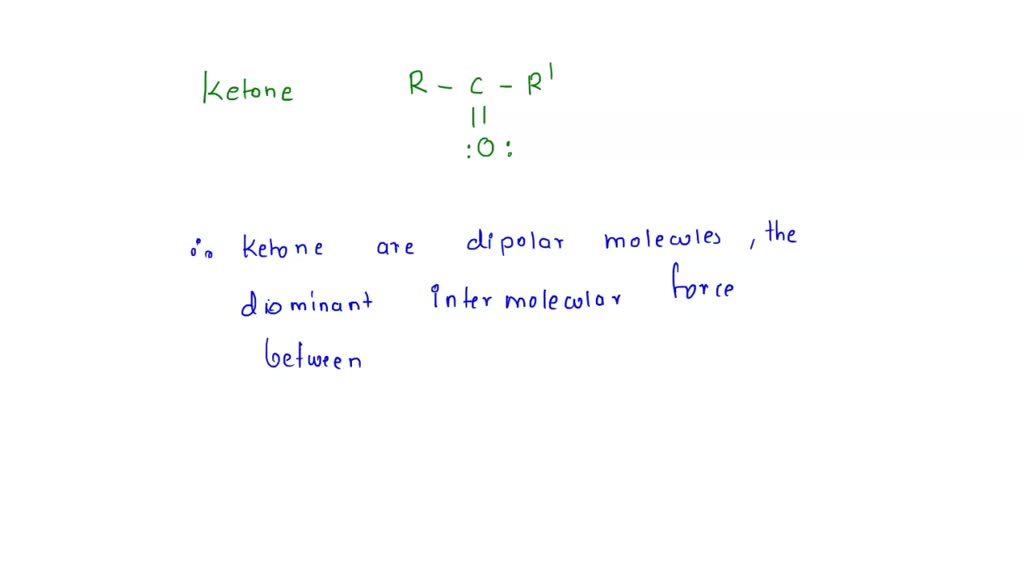 Ketone R - C - R'
||
:O:
∴ Ketone are dipolar molecules, the
diominant intermolecular force
between